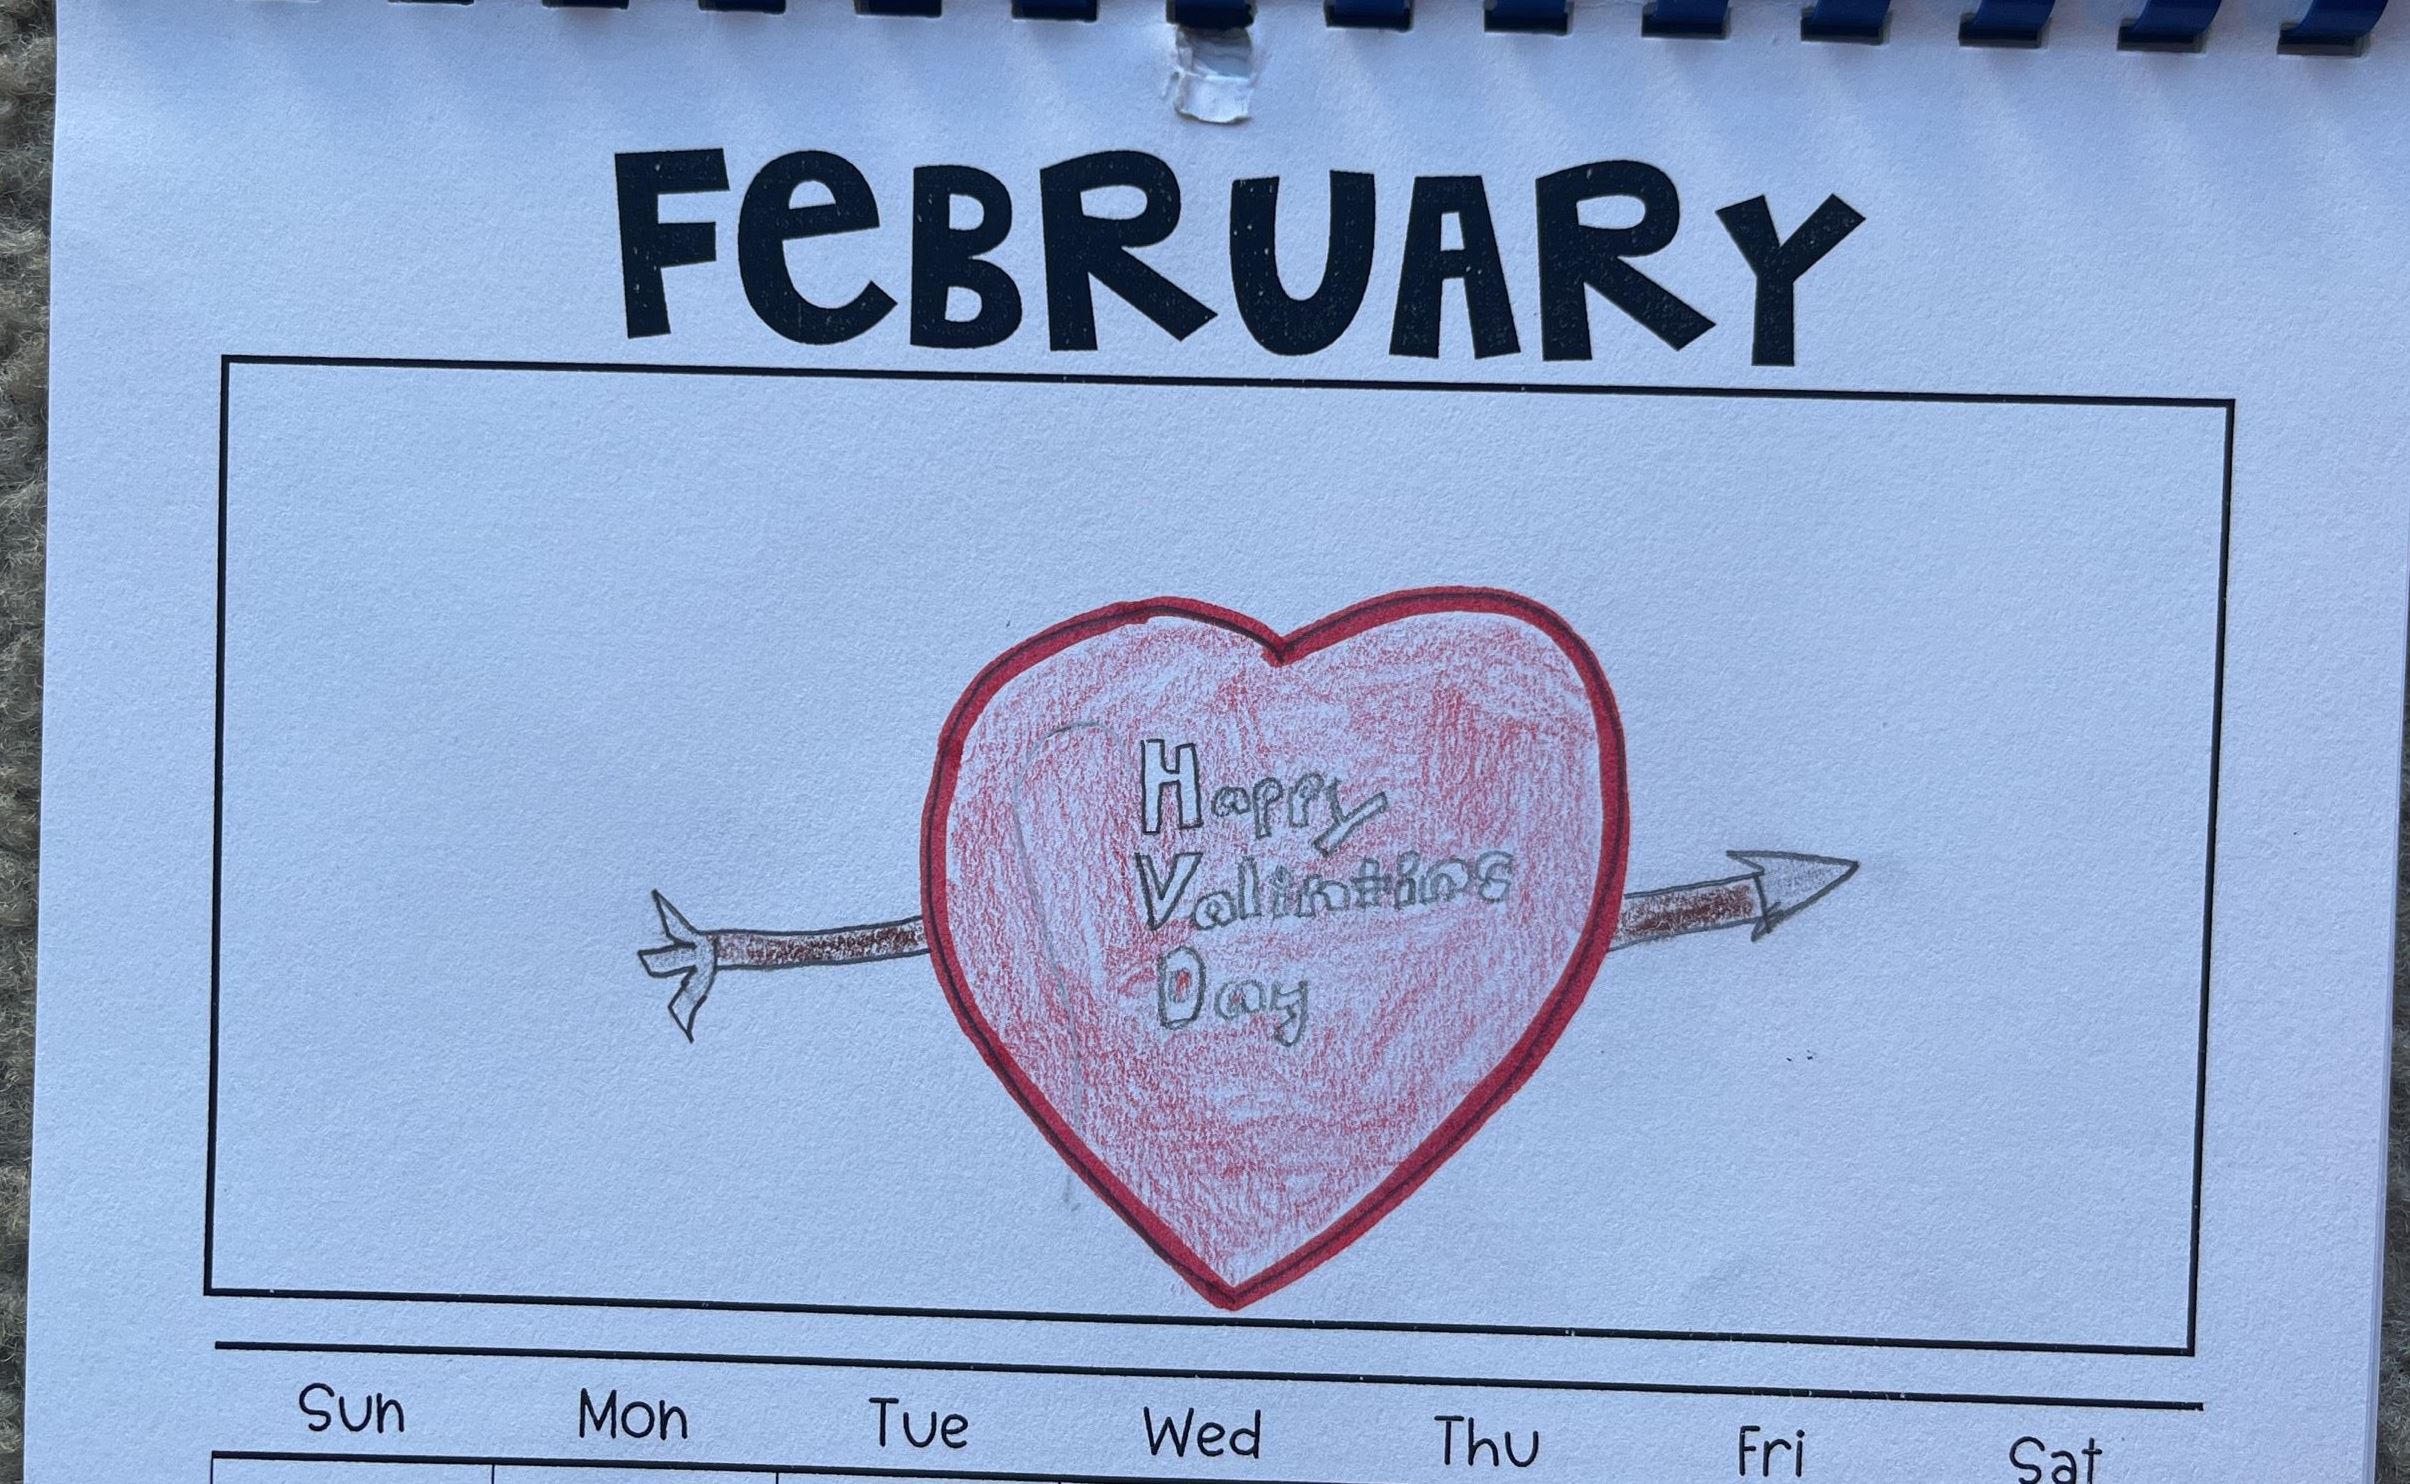 FeBRUARY
Happy
Valintins
Day
Sun Mon Tue Wed Thu Fri Sat